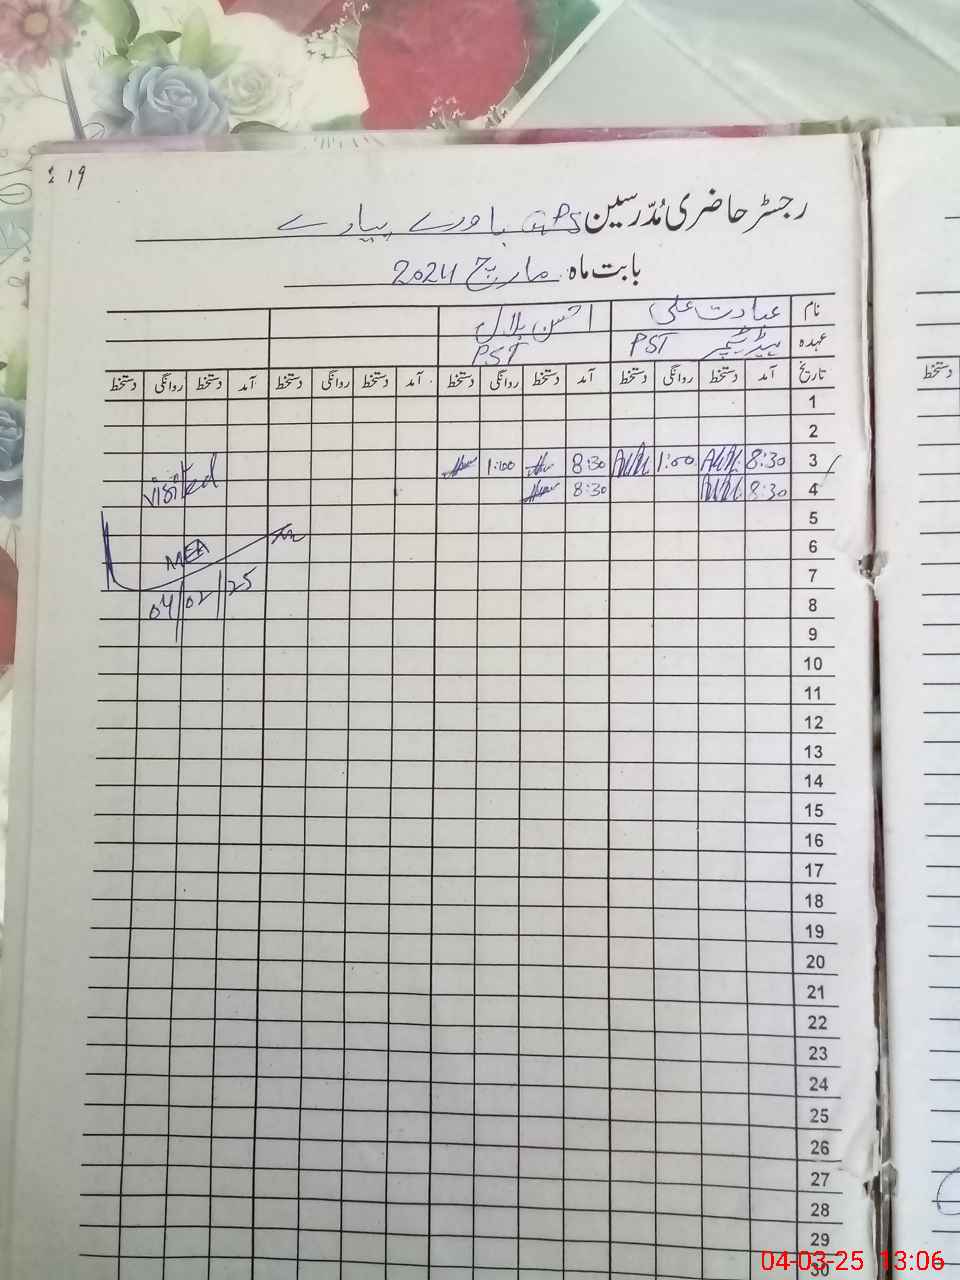 19
رجسٹر حاضری مُدّرسین GPS باورے پیادے
بابت ماہ مارچ 2024
نام عبادت علی احسن بلال
عہدہ ہیڈ ٹیچر PST PST
تاریخ آمد دستخط روانگی دستخط آمد دستخط روانگی دستخط آمد دستخط روانگی دستخط آمد دستخط روانگی دستخط
1
2
3 8:30 1:00 8:30 1:00
4 8:30 8:30
visited
5
6
MEA
7
04/02/25
8
9
10
11
12
13
14
15
16
17
18
19
20
21
22
23
24
25
26
27
28
29
30
دستخط
04-03-25 13:06